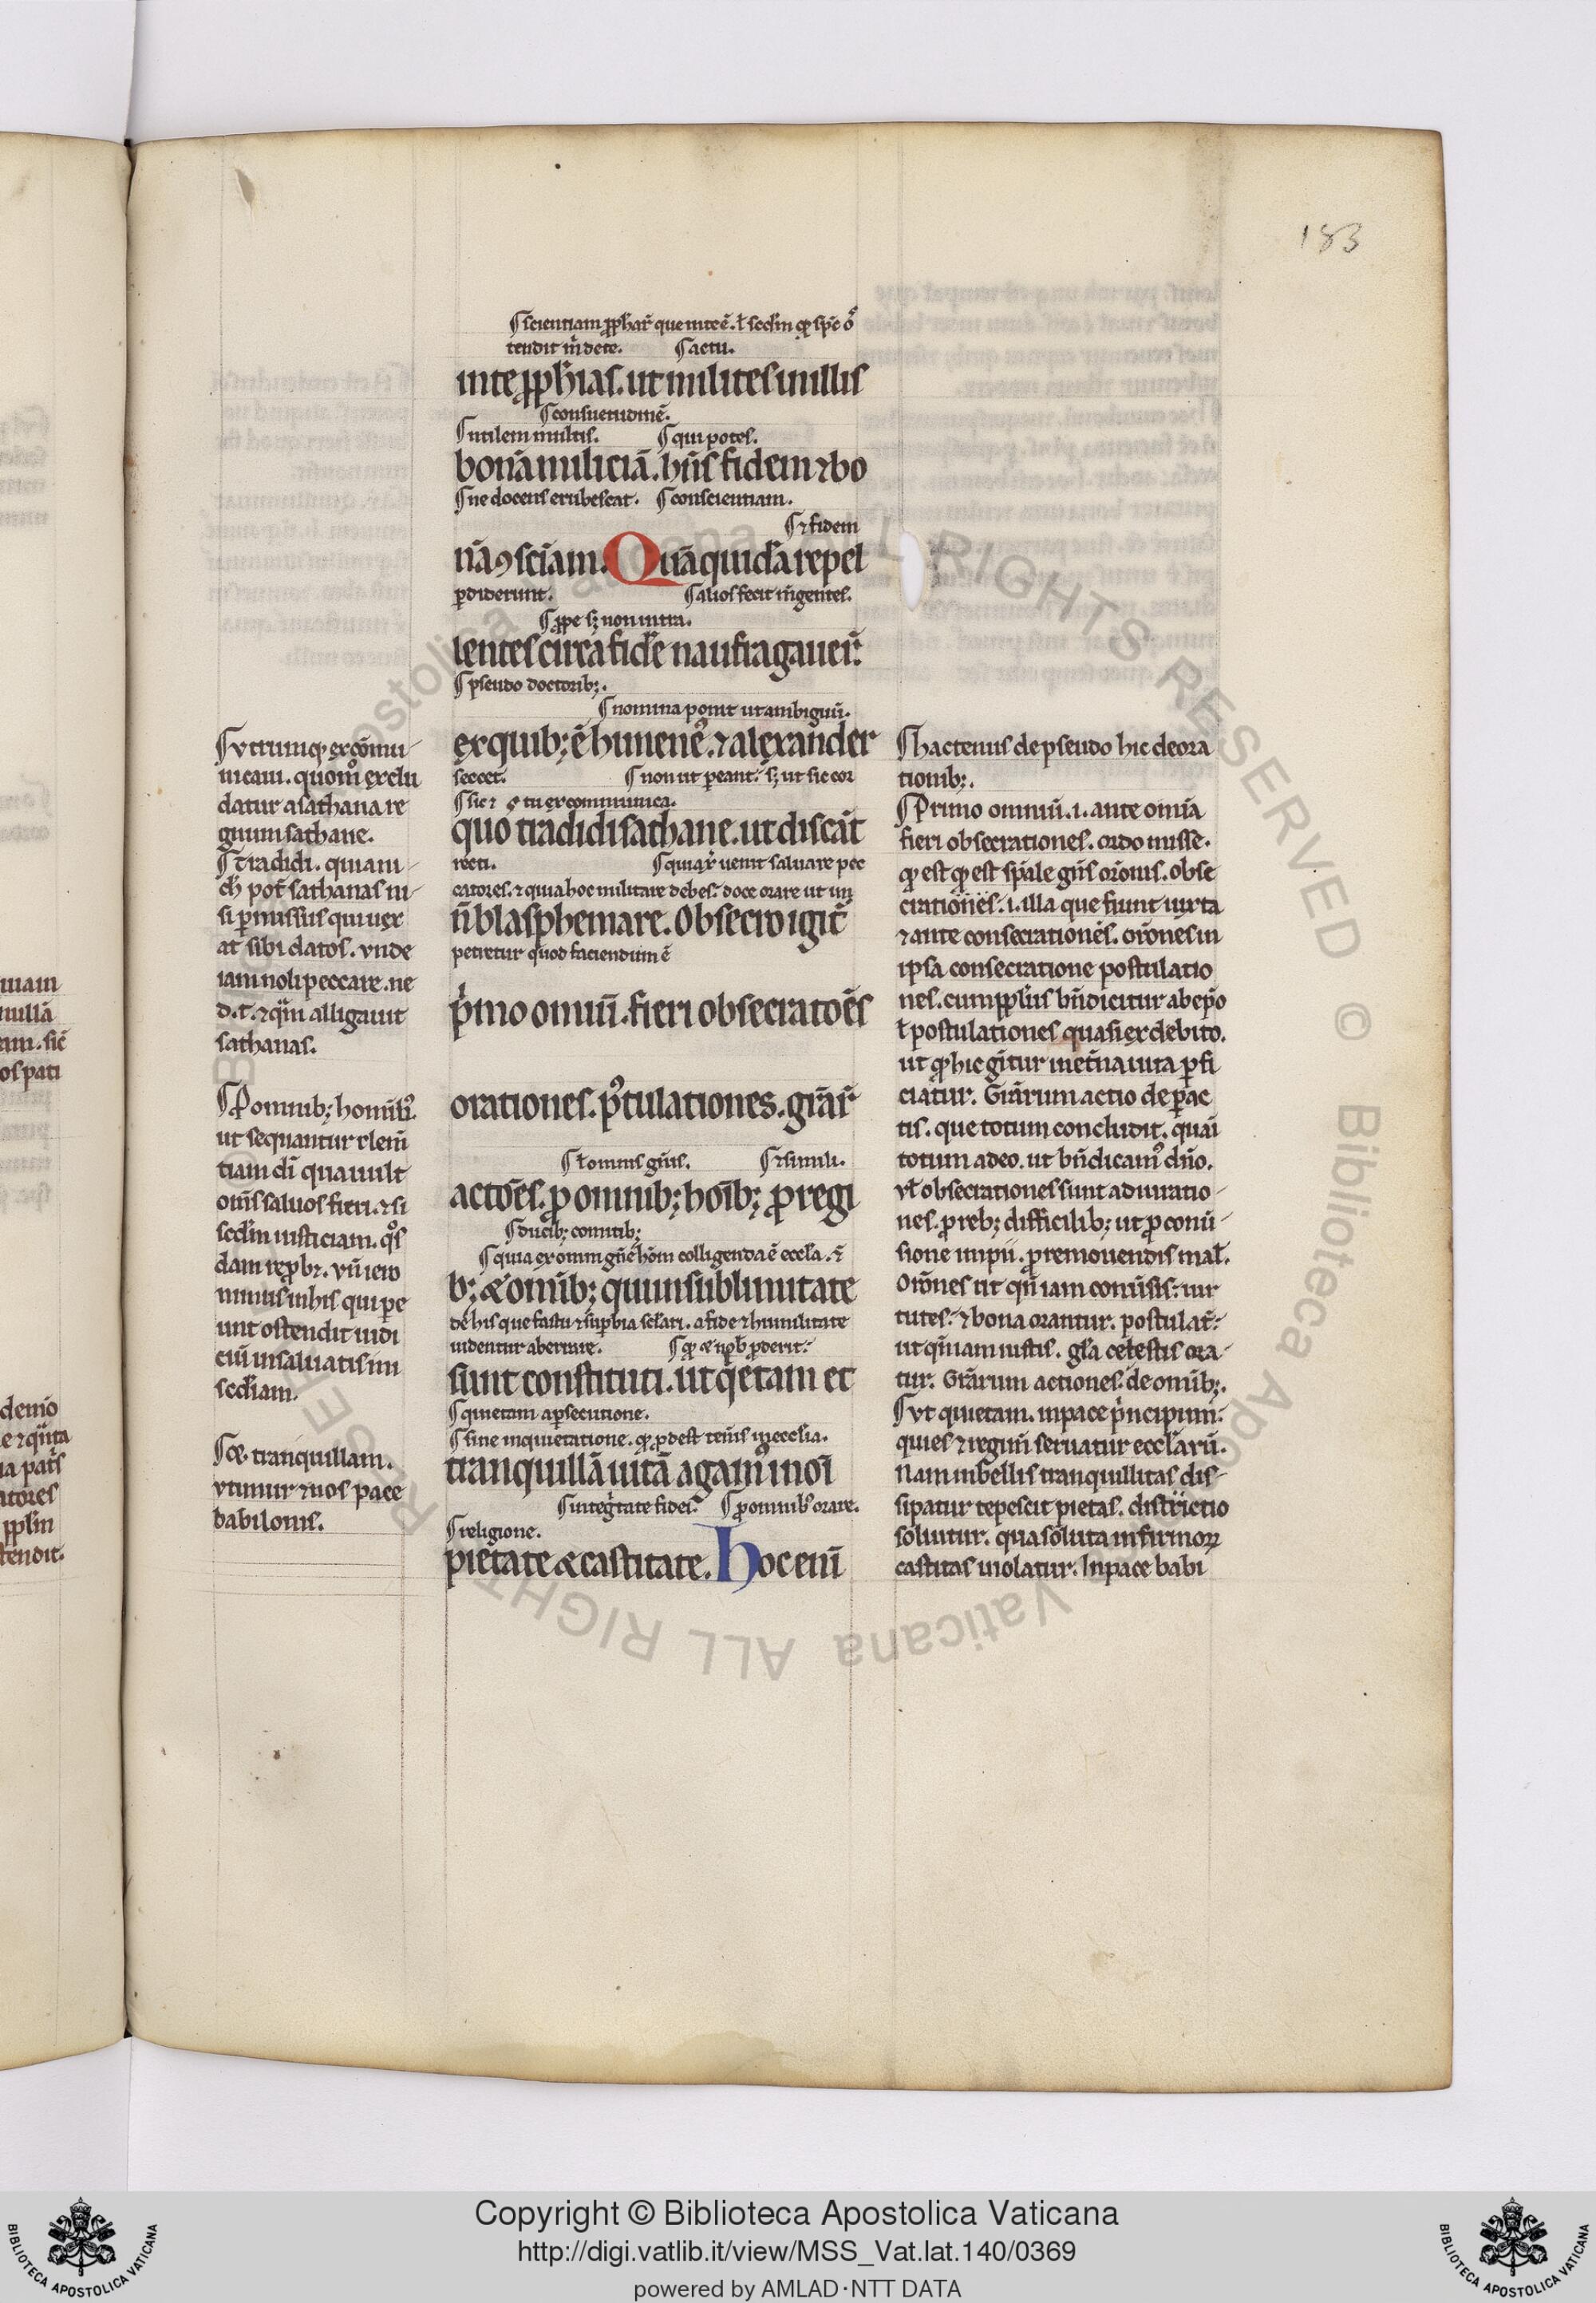 183
¶ scientiam ꝓph̄ar̄ que inte ē. ł sed̄m q̄ sp̄c oͬ
tendit m̄ de te. ¶ actu.
inte ꝓph̄ias. ut milites in illis
¶ consuetudinē.
¶ utilem multis. ¶ qui potes.
bonā miliciā. hn̄s fidem ⁊ bo
¶ ne docens erubescat. ¶ conscientiam.
¶ ⁊ fidem
nā ꝯsciam. Quā quidā repel
ꝑdiderunt. ¶ alios fecit īngentes.
¶ ꝓpe sꝫ non intra.
lentes circa fidē naufragauer̄.
¶ pseudo doctorib;.
¶ nomina ponit ut ambiguū.
ex quib; ē himeneꝰ. ⁊ alexander
¶ non ut pereant. sꝫ ut sic cor
¶ sic ⁊ tu excommunica.
quos tradidi sathane. ut discāt
recti. ¶ quia xp̄c uenit saluare pec
catores. ⁊ quia hoc militare debes. doce orare ut im
n̄ blasphemare. Obsecro igit̄
petretur quod faciendum ē
pͥmo omniū. fieri obsecratōēs
orationes. pꝰtulationes. grār̄
¶ ł omnis gn̄is. ¶ ⁊ simili.
actōes. ꝓ omnib; hoīb; ꝓ regi
¶ ducib; comitib;
¶ quia ex omni gn̄e hōm colligenda ē eccl̄a. ⁊
b; & omīb; qui in sublimitate
de his que fastu ⁊ suꝑbia scl̄ari. a fide ⁊ humilitate
uidentur aberrare. ¶ ꝙ & nob̄ ꝓderit.
sunt constituti. ut q̄etam et
¶ quietam a ꝑsecutione.
¶ sine inquietatione. ꝙ ꝓdest in ecclesia.
tranquillā uitā agamꝰ in oī
¶ integͥtate fidei. ¶ ꝓ omnibꝰ orare.
¶ religione.
pietate & castitate. Hoc enī
¶ vtrumq; excōmu-
nicaui. quom̄ exclu
datur a sathana re
gnum sathane.
¶ Tradidi. quia ni-
ch̄ pot̄ sathanas ni-
si ꝑmissus qui uex
at sibi datos. vnde
iam noli peccare. ne
d. t. ⁊ q̄m alligauit
sathanas.
¶ P omnib; hominibꝰ.
ut sequantur clem̄
tiam dī qua uult
om̄s saluos fieri. ⁊ si
sed̄m iusticiam. qͦs
dam reꝓb&. Vn̄ iero
nimus in his qui pe
unt ostendit iudi
ciū in saluatis mi
sed̄iam.
¶ Se. tranquillam.
vtimur ⁊ nos pace
babilonis.
¶ hactenus de pseudo hic de ora
tionib;.
¶ Primo omniū. i. ante omīa
fieri obsecrationes. ordo misse.
ꝙ est ꝙ est sp̄ale gn̄s orōnis. obse
crationes. i. illa que fiunt iuxta
⁊ ante consecrationes. orōnes in
ipsa consecratione postulatio
nes. cum ppl̄us bn̄dicitur ab ep̄o
ł postulationes quasi ex debito.
ut ꝙ hic gͥtur inet̄na uita ꝑfi
ciatur. Grārum actio de ꝑac
tis. que totum concludit. quā
totum a deo. ut bn̄dicamꝰ dn̄o.
vł obsecrationes sunt adiuratio-
nes. ꝓ reb; difficilib; ut ꝓ conū-
sione impii. ꝓ remouendis mał.
Orōnes ut qn̄ iam conūsis. uir
tutes. ⁊ bona orantur. postulat̄.
ut qn̄ iam iustis. gl̄a celestis ora-
tur. Grārum actiones. de omīb;.
¶ vt quietam. in pace pͥncipum.
quies ⁊ regim̄ seruatur eccl̄arū.
Nam in bellis tranquillitas dis-
sipatur tepescit pietas. districtio
soluitur. qua soluta infirmoꝝ
castitas uiolatur. In pace babi
Copyright © Biblioteca Apostolica Vaticana
http://digi.vatlib.it/view/MSS_Vat.lat.140/0369
powered by AMLAD·NTT DATA